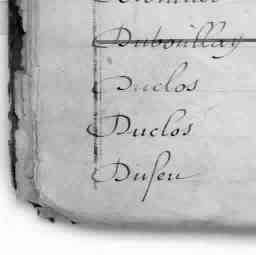 Dubouillay
Duclos
Duclos
Dufeu